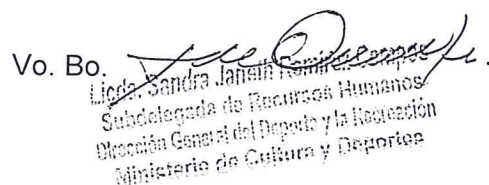 Vo. Bo.
Licda. Sandra Janeth Ramírez
Subdelegada de Recursos Humanos
Dirección General del Deporte y la Recreación
Ministerio de Cultura y Deportes